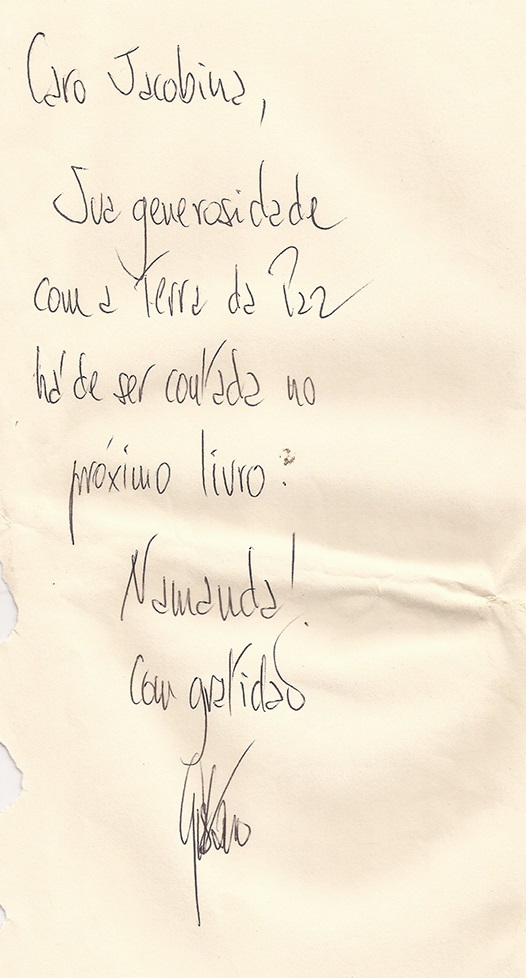 Caro Jacobina,
Sua generosidade
com a Terra da Paz
há de ser contada no
próximo livro:
Namanda!
Com gratidão
Gustavo